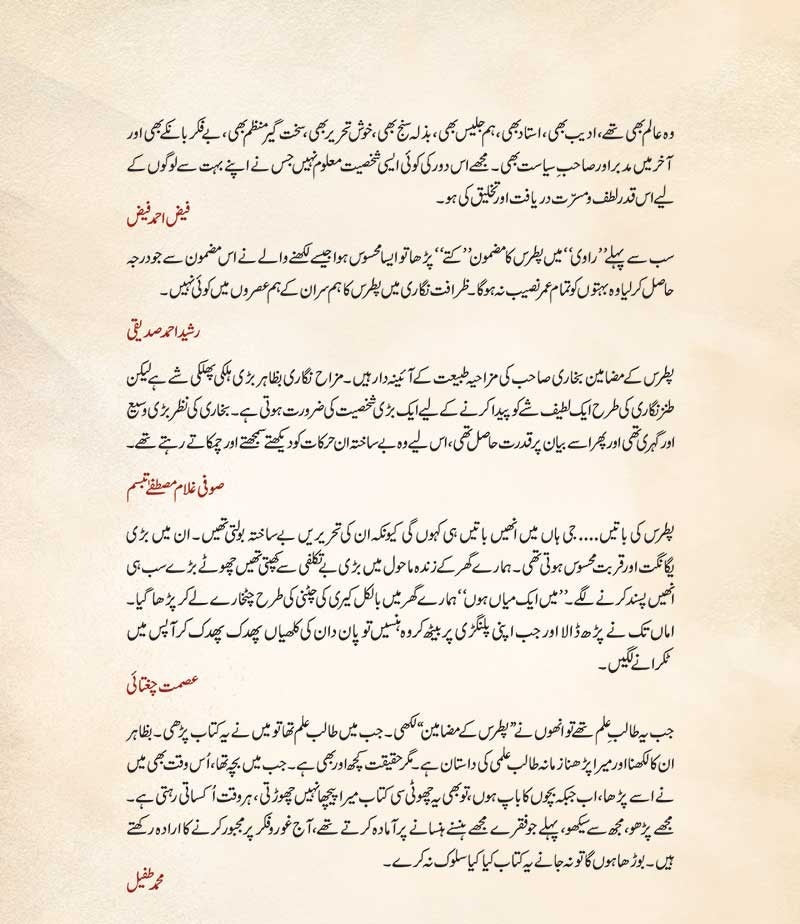 وہ عالم بھی تھے، ادیب بھی، استاد بھی، ہم جلیس بھی، بذلہ سنج بھی، خوش تحریر بھی، سخت گیر منتظم بھی، بے فکر بانکے بھی اور
آخر میں مدبر اور صاحبِ سیاست بھی۔ مجھے اس دور کی کوئی ایسی شخصیت معلوم نہیں جس نے اپنے بہت سے لوگوں کے
لیے اس قدر لطف و مسرّت دریافت اور تخلیق کی ہو۔
فیض احمد فیض
سب سے پہلے ’’راوی‘‘ میں پطرس کا مضمون ’’کتے‘‘ پڑھا تو ایسا محسوس ہوا جیسے لکھنے والے نے اس مضمون سے جو درجہ
حاصل کر لیا وہ بہتوں کو تمام عمر نصیب نہ ہوگا۔ ظرافت نگاری میں پطرس کا ہم سران کے ہم عصروں میں کوئی نہیں۔
رشید احمد صدیقی
پطرس کے مضامین بخاری صاحب کی مزاحیہ طبیعت کے آئینہ دار ہیں۔ مزاح نگاری بظاہر بڑی ہلکی پھلکی شے ہے لیکن
طنز نگاری کی طرح ایک لطیف شے کو پیدا کرنے کے لیے ایک بڑی شخصیت کی ضرورت ہوتی ہے۔ بخاری کی نظر بڑی وسیع
اور گہری تھی اور پھر اسے بیان پر قدرت حاصل تھی، اس لیے وہ بے ساختہ ان حرکات کو دیکھتے سمجھتے اور چمکاتے رہتے تھے۔
صوفی غلام مصطفےٰ تبسم
پطرس کی باتیں.... جی ہاں میں انھیں باتیں ہی کہوں گی کیونکہ ان کی تحریریں بے ساختہ بولتی تھیں۔ ان میں بڑی
یگانگت اور قربت محسوس ہوتی تھی۔ ہمارے گھر کے زندہ ماحول میں بڑی بے تکلفی سے کھپتی تھیں چھوٹے بڑے سب ہی
انھیں پسند کرنے لگے۔ ’’میں ایک میاں ہوں‘‘ ہمارے گھر میں بالکل کیری کی چٹنی کی طرح چٹخارے لے کر پڑھا گیا۔
اماں تک نے پڑھ ڈالا اور جب اپنی پلنگڑی پر بیٹھ کر وہ ہنسیں تو پان دان کی کلھیاں پھدک پھدک کر آپس میں
ٹکرانے لگیں۔
عصمت چغتائی
جب یہ طالبِ علم تھے تو انھوں نے ’’پطرس کے مضامین‘‘ لکھی۔ جب میں طالب علم تھا تو میں نے یہ کتاب پڑھی۔ بظاہر
ان کا لکھنا اور میرا پڑھنا زمانہ طالب علمی کی داستان ہے۔ مگر حقیقت کچھ اور بھی ہے۔ جب میں بچہ تھا، اُس وقت بھی میں
نے اسے پڑھا، اب جبکہ بچوں کا باپ ہوں، تو بھی یہ چھوٹی سی کتاب میرا پیچھا نہیں چھوڑتی، ہر وقت اُکساتی رہتی ہے۔
مجھے پڑھو، مجھ سے سیکھو، پہلے جو فقرے مجھے ہنسنے ہنسانے پر آمادہ کرتے تھے، آج غور و فکر پر مجبور کرنے کا ارادہ رکھتے
ہیں۔ بوڑھا ہوں گا تو نہ جانے یہ کتاب کیا کیا سلوک نہ کرے۔
محمد طفیل